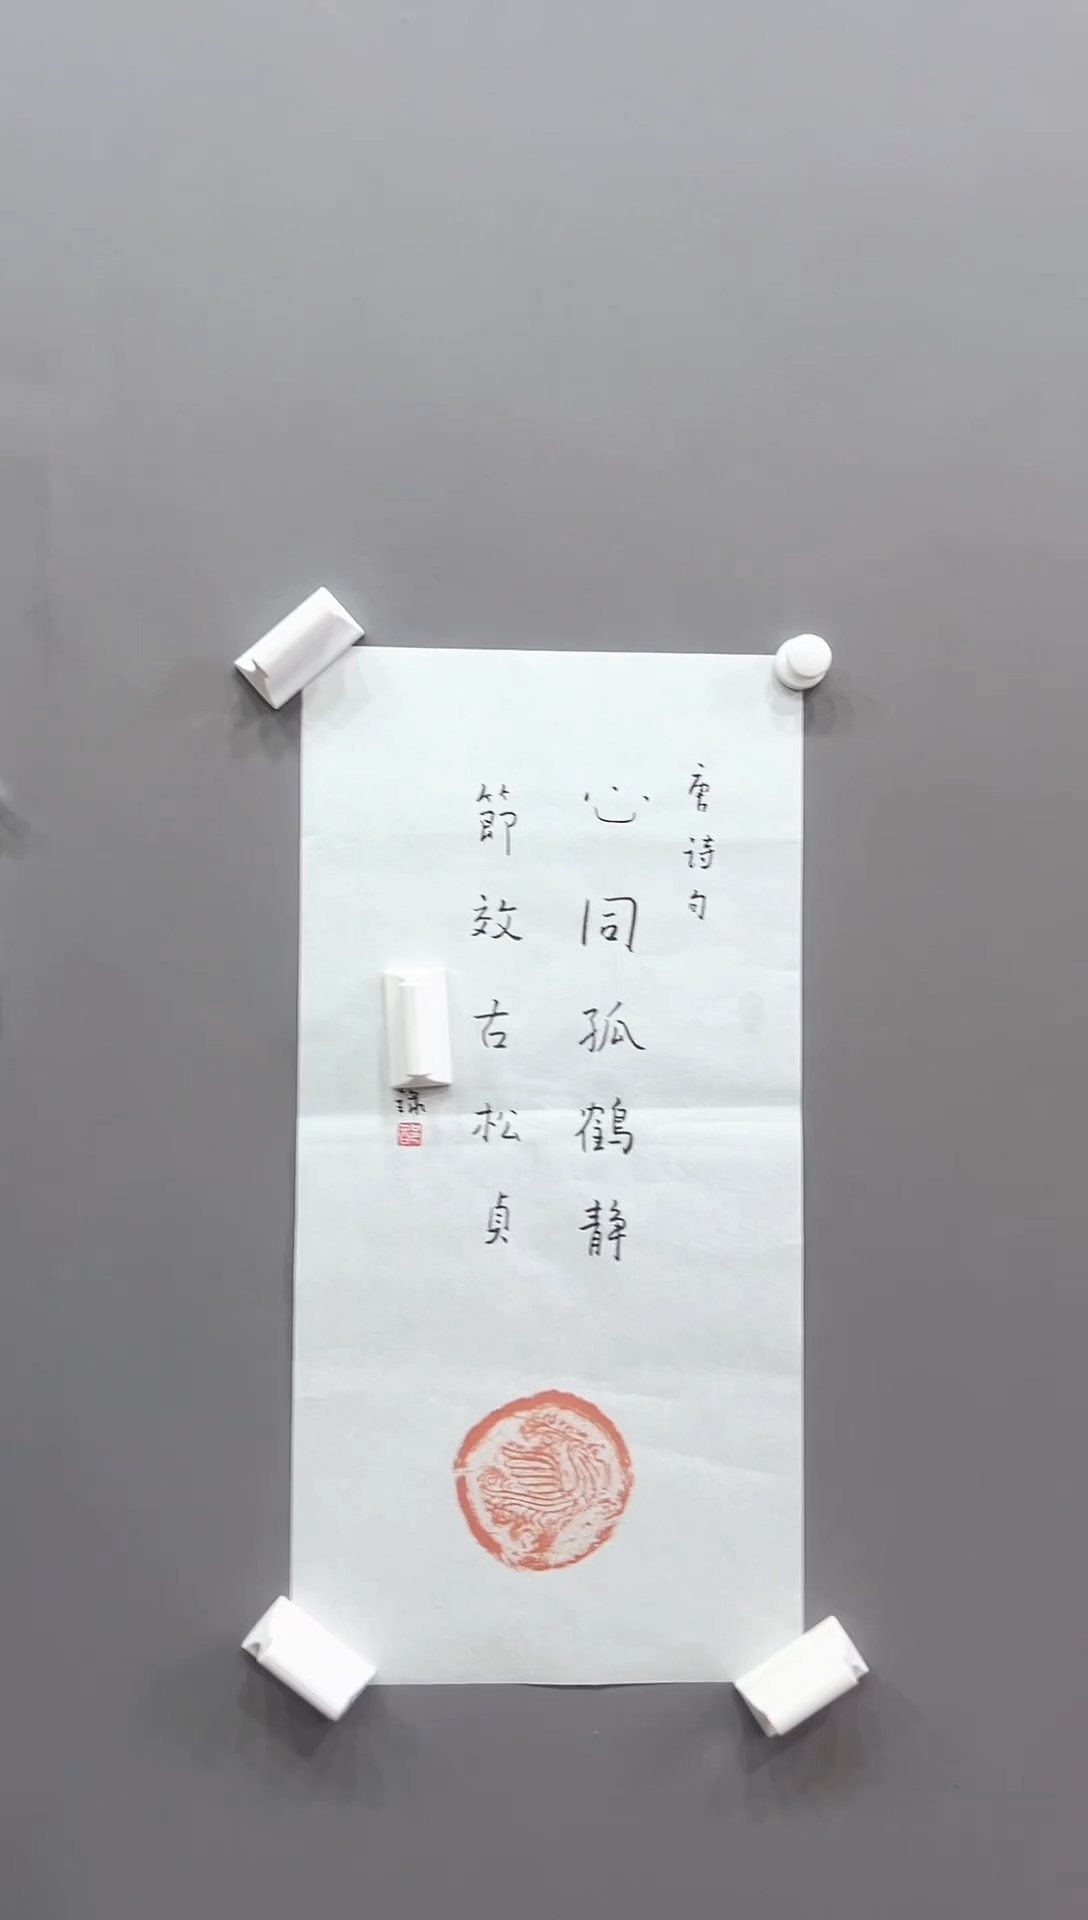 唐诗句
心同孤鶴静
節效古松貞
録